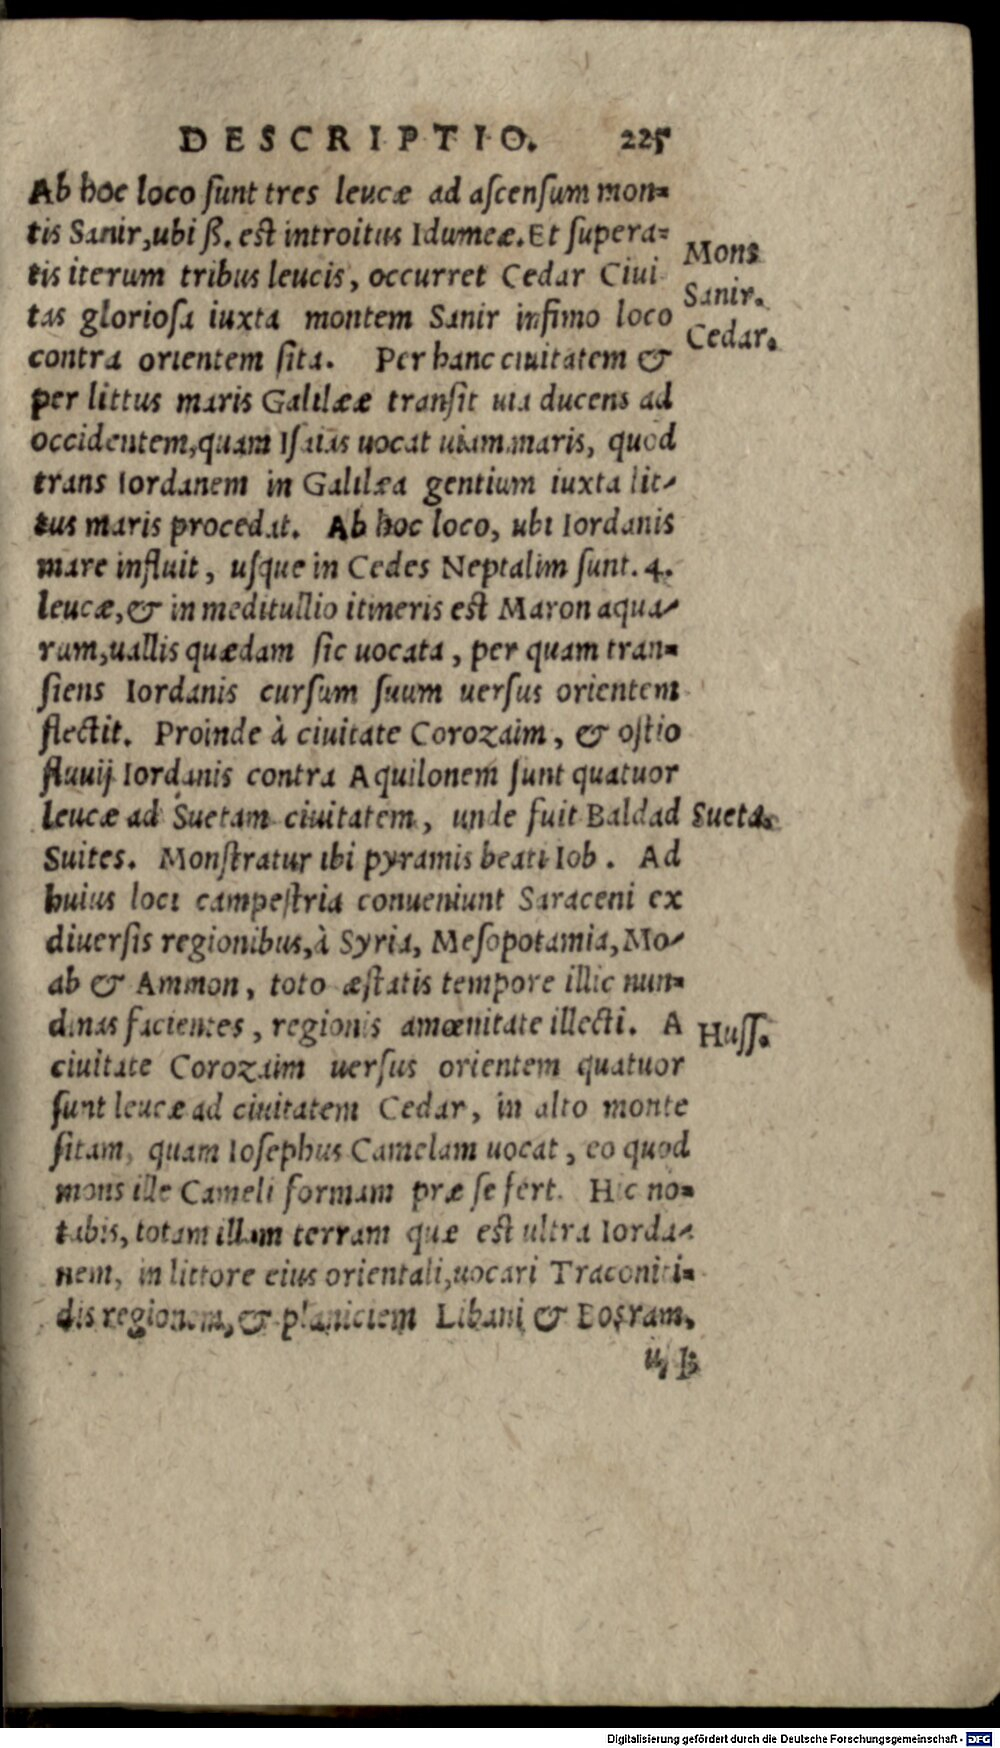 DESCRIPTIO. 225
Ab hoc loco ſunt tres leucæ ad aſcenſum mon=
tis Sanir, ubi ß. eſt introitus Idumeæ. Et ſupera=
tis iterum tribus leucis, occurret Cedar Ciui
tas glorioſa iuxta montem Sanir infimo loco
contra orientem ſita. Per hanc ciuitatem &
per littus maris Galilææ tranſit uia ducens ad
occidentem, quam Iſaias uocat uiam maris, quod
trans Iordanem in Galilæa gentium iuxta lit-
tus maris procedat. Ab hoc loco, ubi Iordanis
mare influit, uſque in Cedes Neptalim ſunt. 4.
leucæ, & in meditullio itineris eſt Maron aqua-
rum, uallis quædam ſic uocata, per quam tran=
ſiens Iordanis curſum ſuum uerſus orientem
flectit. Proinde à ciuitate Corozaim, & oſtio
fluuij Iordanis contra Aquilonem ſunt quatuor
leucæ ad Suetam ciuitatem, unde fuit Baldad
Suites. Monſtratur ibi pyramis beati Iob. Ad
huius loci campeſtria conueniunt Saraceni ex
diuerſis regionibus, à Syria, Meſopotamia, Mo-
ab & Ammon, toto æſtatis tempore illic nun=
dinas facientes, regionis amœnitate illecti. A
ciuitate Corozaim uerſus orientem quatuor
ſunt leucæ ad ciuitatem Cedar, in alto monte
ſitam, quam Ioſephus Camelam uocat, eo quod
mons ille Cameli formam præ ſe fert. Hic no=
tabis, totam illam terram quæ eſt ultra Iorda-
nem, in littore eius orientali, uocari Traconiti=
dis regionem, & planiciem Libani & Boſram,
Mons
Sanir.
Cedar.
Sueta.
Huſſ.
Digitalisierung gefördert durch die Deutsche Forschungsgemeinschaft - DFG